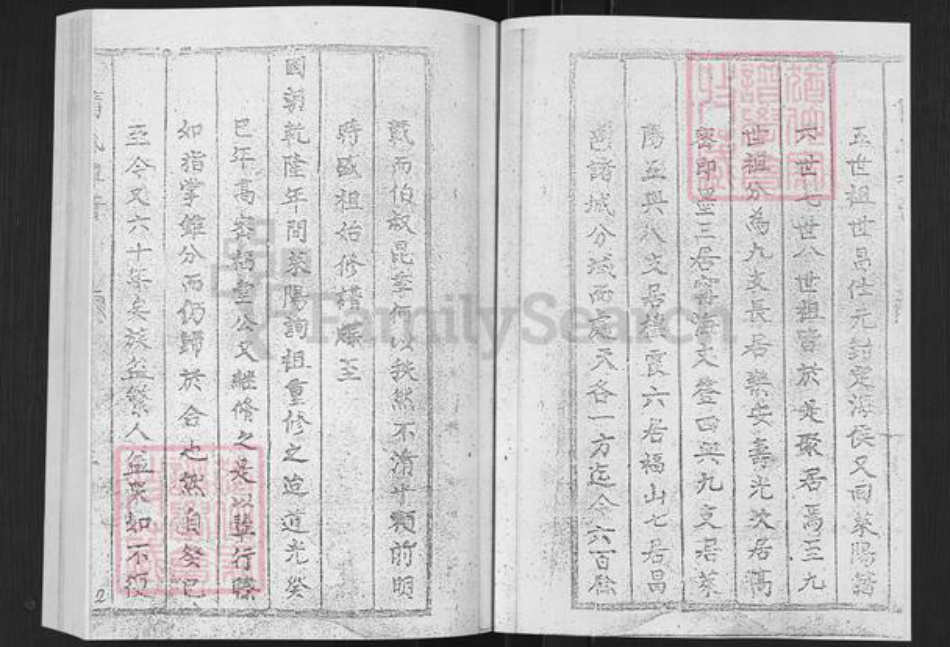 五世祖世昌仕元封定海侯又由萊陽諸
六世七世八世祖皆於是聚居焉至九
世祖分為九支長居樂安壽光次居高
密即墨三居寧海文登四與九支居萊
陽五與八支居棲霞六居福山七居昌
邑諸城分域而處天各一方迄今六百餘
載而伯叔昆季何以秩然不淆乎賴前明
時盛祖始修譜牒至
國朝乾隆年間萊陽詢祖重修之迨道光癸
巳年高密 堂公又継修之是以輩行瞭
如指掌雖分而仍歸於合也然自癸巳
至今又六十年矣族益繁人益衆如不
2
FamilySearch